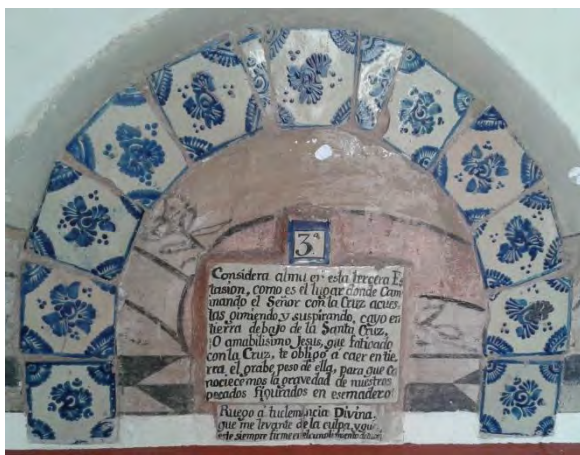 3ª
Considera alma en esta tercera Es
tasion, como es el lugar donde Cam
inando el Señor con la Cruz acues
tas gimiendo, y suspirando, cayo en
tierra debajo de la Santa Cruz,
¡O amabilisimo Jesus, que fatigado
con la Cruz, te obligo a caer en tie
rra, el grabe peso de ella, para que co
nociecemos la gravedad de nuestros
pecados figurados en ese madero!
Ruego a tu clemencia Divina,
que me levante de la culpa, y que
este siempre firme en el cumplimiento de